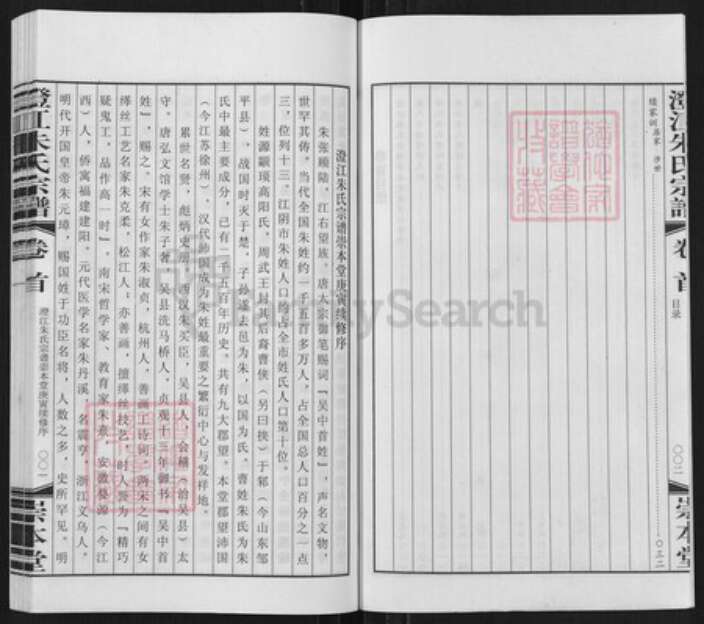 澄江朱氏宗譜
卷首
目录
〇〇二
崇本堂
续家训居家 涉世
〇三二
澄江朱氏宗谱崇本堂庚寅续修序
朱张顾陆，江右望族，唐太宗御笔赐词『吴中首姓』，声名文物，
世罕其俦。当代全国朱姓约一千五百多万人，占全国总人口百分之一点
三，位列十三。江阴市朱姓人口约占全市姓氏人口第十位。
姓源颛顼高阳氏。周武王封其后裔曹侠（另曰挟）于邾（今山东邹
平县），战国时灭于楚，子孙遂去邑为朱，以国为氏。曹姓朱氏为朱
氏中最主要成分，已有一千五百年历史。共有九大郡望。本堂郡望沛国
（今江苏徐州），汉代沛国成为朱姓最重要之繁衍中心与发祥地。
累世名贤，彪炳史册。西汉朱买臣，吴县人，会稽（治吴县）太
守。唐弘文馆学士朱子奢，吴县洗马桥人，贞观十三年御书『吴中首
姓』，赐之。宋有女作家朱淑贞，杭州人，善画工诗词。两宋之间有女
缂丝工艺名家朱克柔，松江人；亦善画，擅缂丝技艺，时人赞为『精巧
疑鬼工，品作高一时』。南宋哲学家、教育家朱熹，安徽婺源（今江
西）人，侨寓福建建阳。元代医学名家朱丹溪，名震亨，浙江义乌人。
明代开国皇帝朱元璋，赐国姓于功臣名将，人数之多，史所罕见。明
澄江朱氏宗譜
卷首
澄江朱氏宗谱崇本堂庚寅续修序
〇〇一
崇本堂
FamilySearch